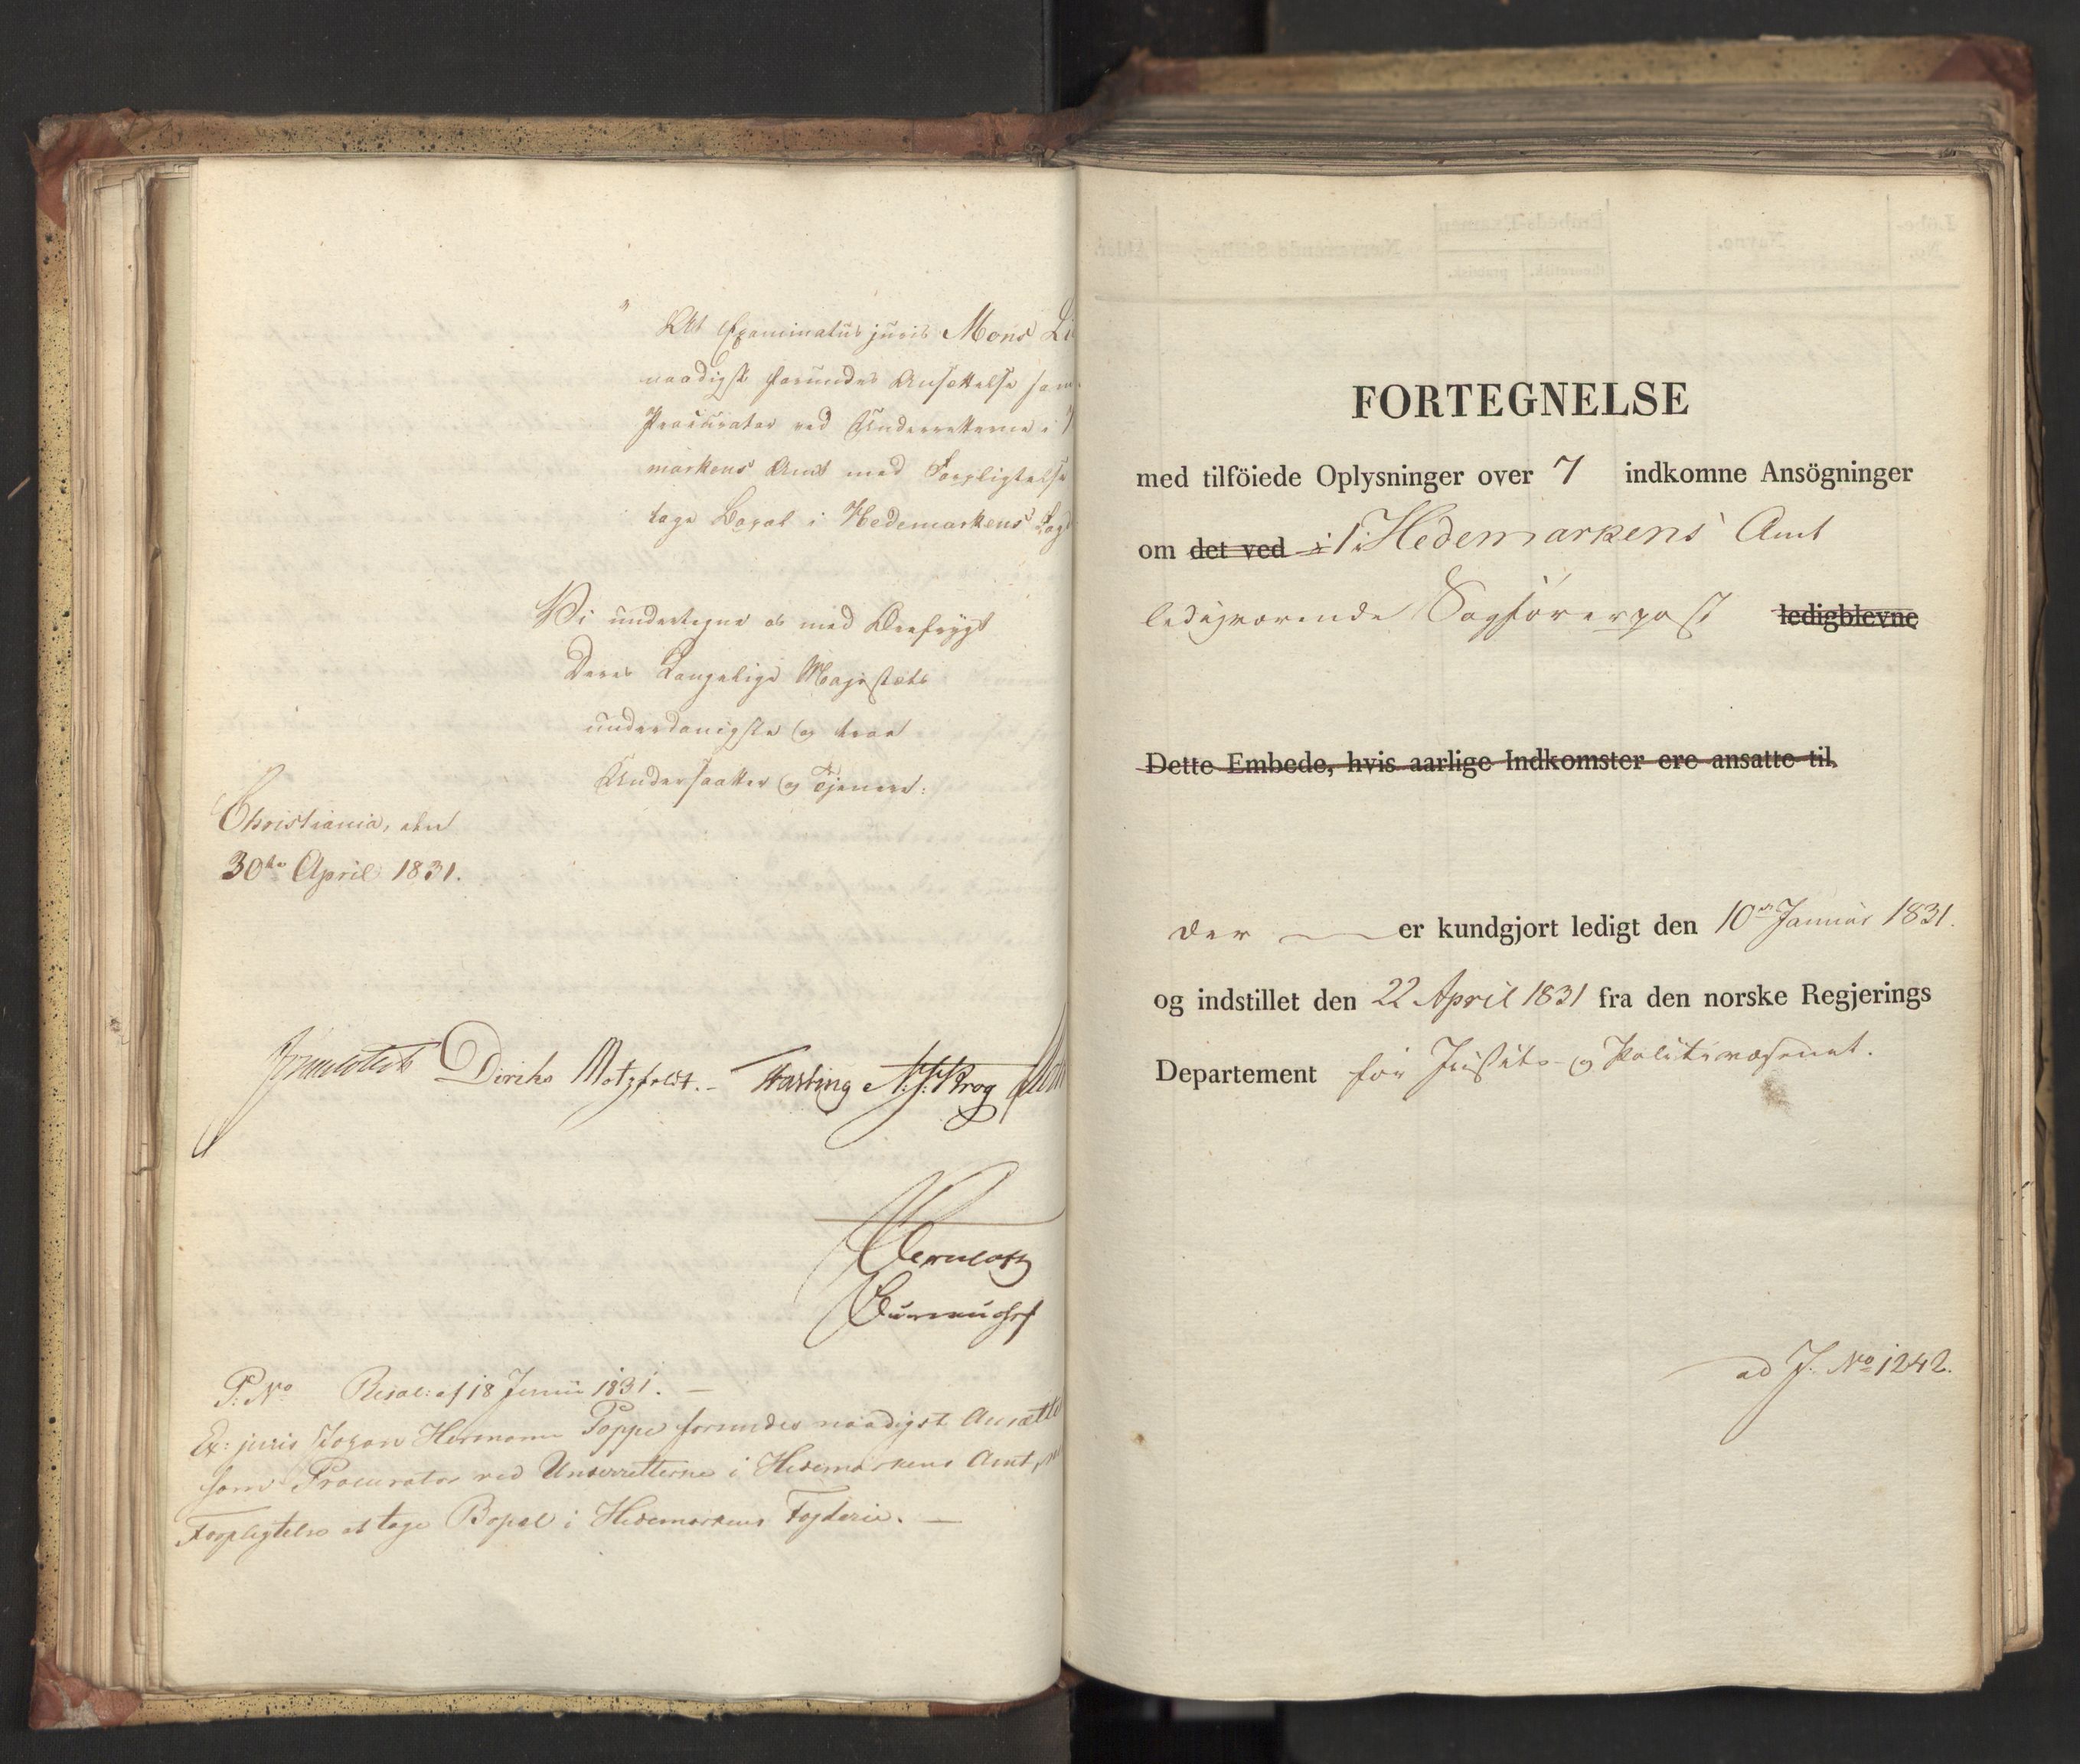 "At Examinatus juris Mons
naadigst forundes Ansættelse som
Procurator ved Underretterne i
markens Amt med Forpligtelse
tage Bopæl i Hedemarkens
Vi undertegne os med Ærefrygt
Deres Kongelige Majestæts
underdanigste og troe
Undersaatter og Tjenere:
Christiania, den
30te April 1831.
Diriks Motzfeldt. Fasting Krog
P: No Resol: af 18 Junii 1831. —
Ex: juris Johan Hermann Poppe forundes naadigst Ansætte
som Procurator ved Underretterne i Hedemarkens Amt,
Forpligtelse at tage Bopæl i Hedemarkens Fogderie. —
FORTEGNELSE
med tilföiede Oplysninger over 7 indkomne Ansögninger
om det ved i 1 i Hedemarkens Amt
ledigværende Sagførerpost ledigblevne
Dette Embede, hvis aarlige Indkomster ere ansatte til,
der — er kundgjort ledigt den 10de Januar 1831.
og indstillet den 22 April 1831 fra den norske Regjerings
Departement for Justits- og Politivæsenet.
ad J. No 1242.